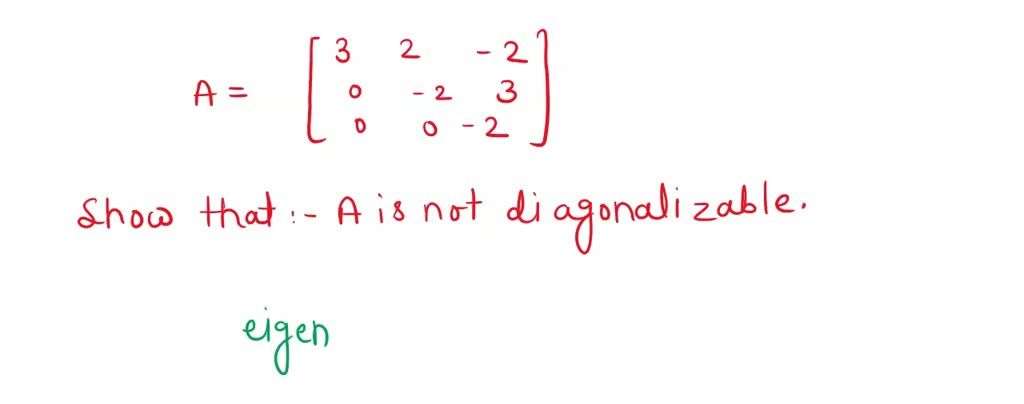 3 2 -2
A = 0 -2 3
0 0 -2
Show that:- A is not diagonalizable.
eigen